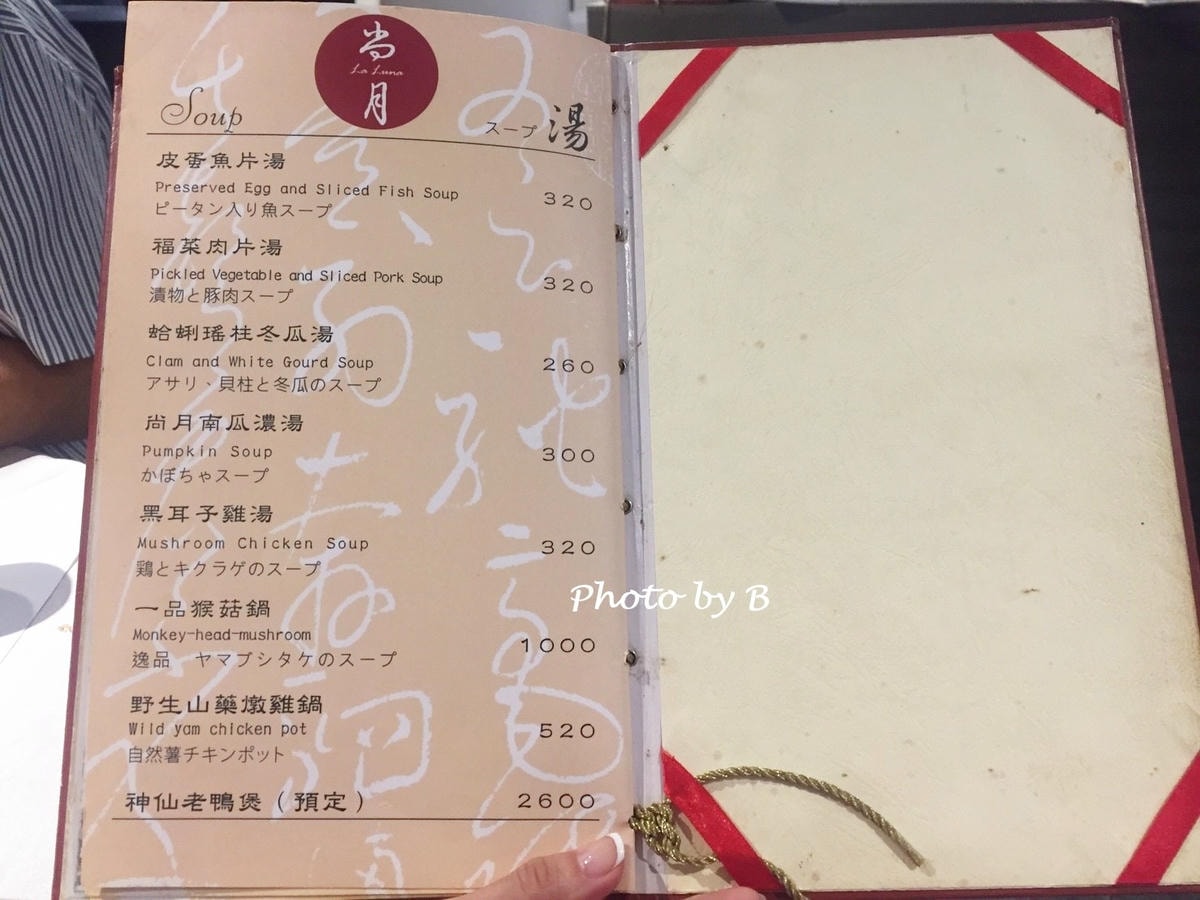 尚
La Luna
月
Soup
スープ 湯
皮蛋魚片湯
Preserved Egg and Sliced Fish Soup 320
ピータン入り魚スープ
福菜肉片湯
Pickled Vegetable and Sliced Pork Soup 320
漬物と豚肉スープ
蛤蜊瑤柱冬瓜湯
Clam and White Gourd Soup 260
アサリ、貝柱と冬瓜のスープ
尚月南瓜濃湯
Pumpkin Soup 300
かぼちゃスープ
黑耳子雞湯
Mushroom Chicken Soup 320
鶏とキクラゲのスープ
一品猴菇鍋
Monkey-head-mushroom 1000
逸品 ヤマブシタケのスープ
野生山藥燉雞鍋
Wild yam chicken pot 520
自然薯チキンポット
神仙老鴨煲(預定) 2600
Photo by B